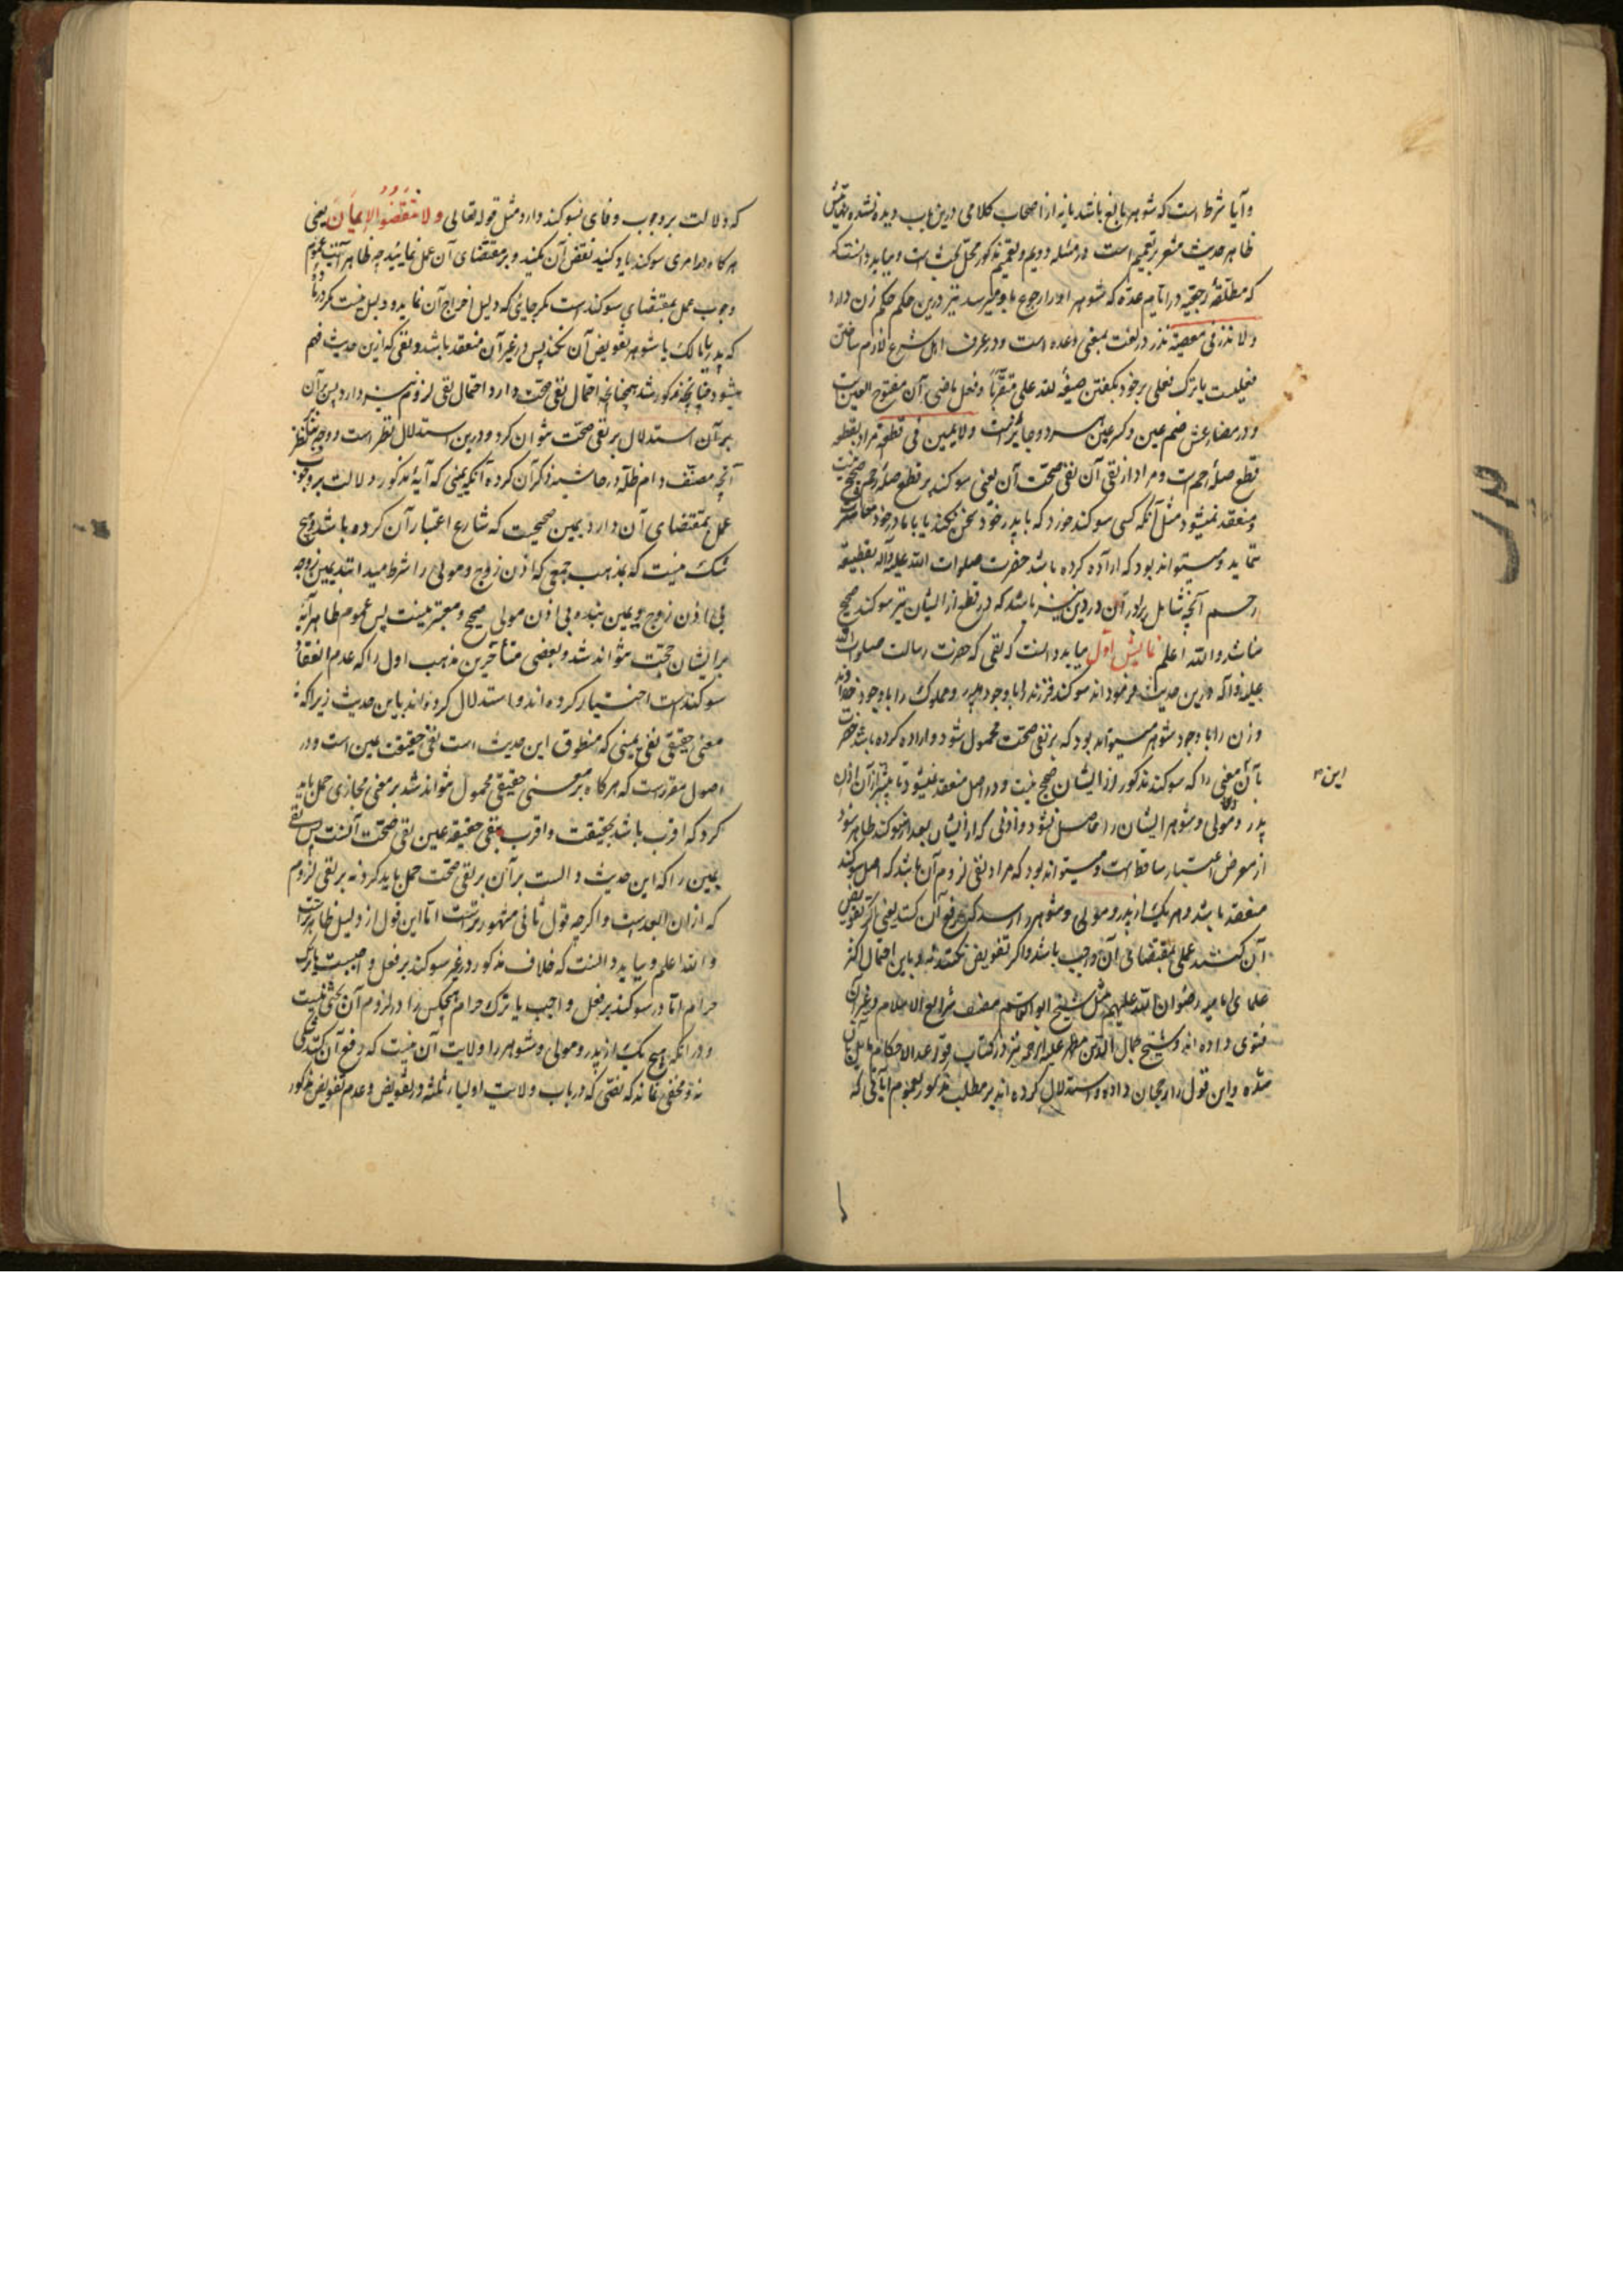 و آیا شرط است که شوهر بالغ باشد یا نه از اصحاب کلامی درین باب دیده نشده
ظاهر حدیث مشعر بتعمیم است در مسئله دویم و تعمیم مذکور محل بحث است و میباید دانست که
که مطلقۀ رجعیه در ایام عده که شوهر او را رجوع باو میرسد نیز درین حکم حکم زن دارد
ولا نذر فی معصیة نذر در لغت بمعنی وعده است و در عرف اهل شرع لازم ساختن
فعلیست یا ترک فعلی بر خود بگفتن صیغۀ لله علی متقرّباً و فعل ماضی آن مفتوح العین است
و در مضارعش ضم عین و کسر عین هر دو جایز است ولا یمین فی قطیعة مراد بقطیعه
قطع صلۀ رحم است و مراد از نفی آن نفی صحت آن یعنی سوکند بر قطع صلۀ رحم صحیح نیست
و منعقد نمیشود مثل آنکه کسی سوکند خورد که با پدر خود سخن نکند یا با مادر خود معاشرت
نماید و میتواند بود که اراده کرده باشد حضرت صلوات الله علیه و آله بقطیعه
رحم آنچه شامل برادران در دین نیز باشد که در قطع از ایشان نیز سوکند صحیح
نباشد والله اعلم نمایش اول میباید دانست که نفی که حضرت رسالت صلوات الله
علیه و آله درین حدیث فرموده اند سوکند فرزند را با وجود پدر و مملوک را با وجود خداوند
و زن را با وجود شوهر میتواند بود که بر نفی صحت محمول شود و اراده کرده باشد حضرت
بآن این معنی را که سوکند مذکور از ایشان صحیح نیست و در اصل منعقد نمیشود تا پیشتر از آن اذن
پدر و مولی و شوهر ایشان را حاصل نشود و اذنی که از ایشان بعد از سوکند ظاهر شود
از معرض اعتبار ساقط است و میتواند بود که مراد نفی لزوم آن باشد که اصل سوکند
منعقد باشد و هر یک از پدر و مولی و شوهر را رسد که رفع آن کنند یعنی اگر تفویض
آن کنند عمل بمقتضای آن واجب باشد و اکر تفویض نکنند نه باین احتمال اکثر
علمای امامیه رضوان الله علیهم مثل شیخ ابو القاسم مصنف شرایع الاسلام و غیر آن
فتوی داده اند و شیخ جمال الدین مطهر علیه الرحمه نیز در کتاب قواعد الاحکام مایل بآن
شده و این قول را رجحان داده و استدلال کرده اند بر مطلب مذکور بعموم آیاتی که
که دلالت بر وجوب وفای بسوکند دارد مثل قوله تعالی ولا تنقضوا الایمان یعنی
هرکاه در امری سوکند یاد کنید نقض آن مکنید و بر مقتضای آن عمل نمایید چه ظاهر آیت عموم
وجوب عمل بمقتضای سوکند است مکر جایی که دلیل اخراج آن نماید و دلیل نیست مکر در مادۀ
که پدر یا مالک یا شوهر تفویض آن نکند پس در غیر آن منعقد باشد و نفی که ازین حدیث فهم
میشود چنانچه مذکور شد همچنانچه احتمال نفی صحت دارد احتمال نفی لزوم نیز دارد پس بر آن
بر آن استدلال بر نفی صحت نتوان کرد و درین استدلال نظر است و وجه نظر
آنچه مصنف دام ظله در حاشیه ذکر آن کرده آنکه یمینی که آیۀ مذکور دلالت بر وجوب
عمل بمقتضای آن دارد یمین صحیحیست که شارع اعتبار آن کرده باشد و هیچ
شک نیست که بمذهب جمعی که اذن زوج و مولی را شرط میدانند یمین زوجه
بی اذن زوج و یمین بنده بی اذن مولی صحیح و معتبر نیست پس عموم ظاهر آیه
بر ایشان حجت نتواند شد و بعضی متأخرین مذهب اول را که عدم انعقاد
سوکند است اختیار کرده اند و استدلال کرده اند باین حدیث زیرا که
معنی حقیقی نفی یمینی که منطوق این حدیث است نفی حقیقت یمین است و در
اصول مقرر است که هرکاه بر معنی حقیقی محمول نتواند شد بر معنی مجازی حمل باید
کرد که اقرب باشد بحقیقت و اقرب بنفی حقیقة یمین نفی صحت آنست پس نفی
یمین را که این حدیث دالست بر آن بر نفی صحت حمل باید کرد نه بر نفی لزوم
که از ان ابعد است و اکرچه قول ثانی مشهورتر است اما این قول از دلیل ظاهرتر است
والله اعلم و بباید دانست که خلاف مذکور در غیر سوکند بر فعل واجبست یا ترک
حرام اما در سوکند بر فعل واجب یا ترک حرام هیچکس را در لزوم آن بحثی نیست
و در آنکه هیچ یک از پدر و مولی و شوهر را ولایت آن نیست که رفع آن کند
نه و مخفی نماند که نفیی که در باب ولایت اولیاء ثلثه و تفویض و عدم تفویض مذکور